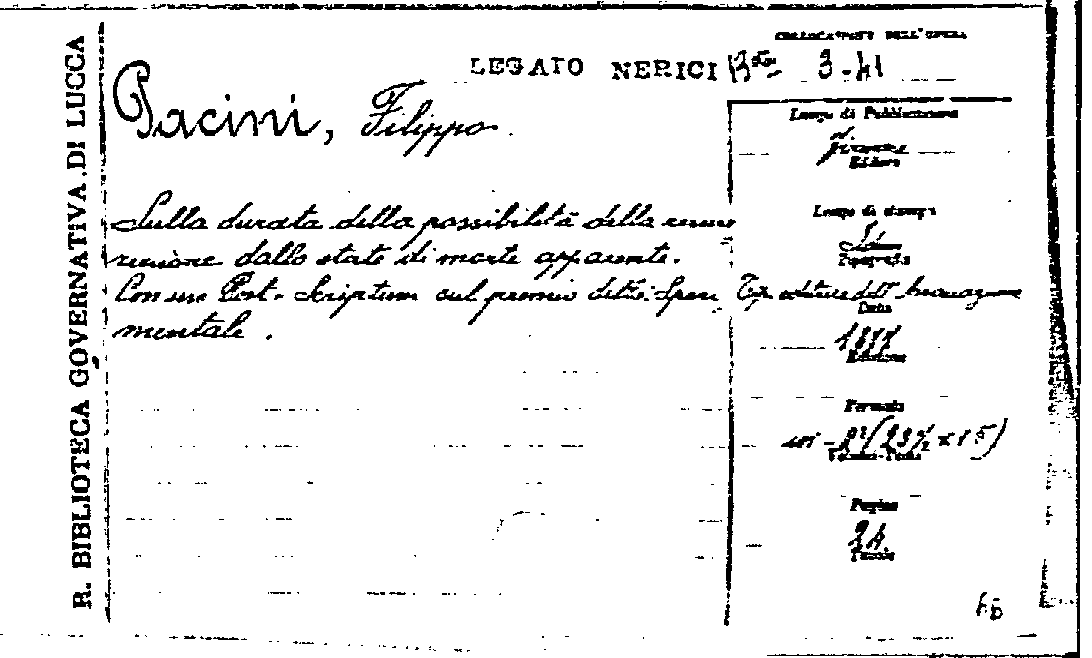 R. BIBLIOTECA GOVERNATIVA DI LUCCA
COLLOCAZIONE DELL'OPERA
LEGATO NERICI 3-41
Pacini, Filippo.
Sulla durata della possibilità della
dallo stato di morte apparente.
Con un Post-Scriptum sul premio detto: Speri
mentale.
Luogo di Pubblicazione
Firenze
Editore
Luogo di stampa
Tipografia
Tip. editrice dell'Associazione
Data
Edizione
Formato
in-8º (23½ x 15)
Volumi-Tomi
Pagine
24.
Tavole